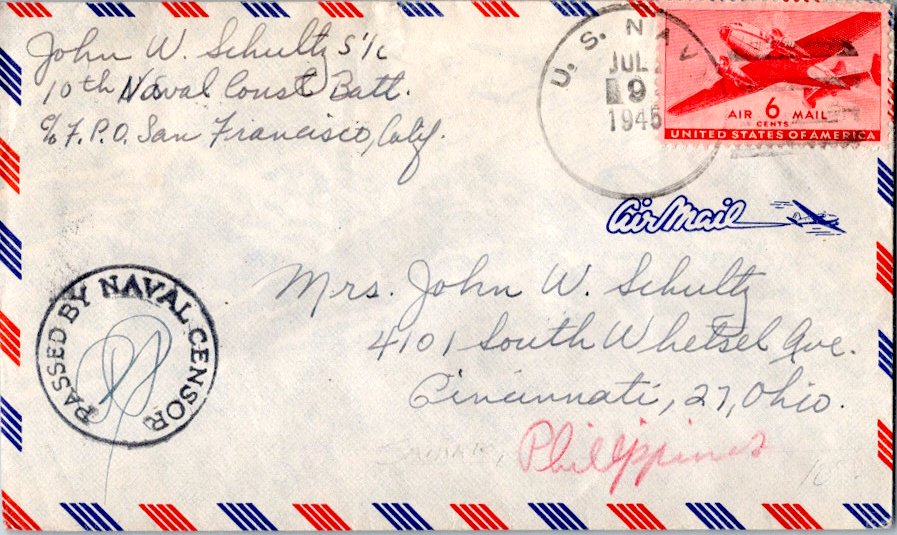 John W. Schultz S 1/c
10th Naval Const Batt.
c/o F.P.O. San Francisco, Calif.
U. S. NAV
JUL
9
1945
AIR 6 MAIL
CENTS
UNITED STATES OF AMERICA
Air Mail
PASSED BY NAVAL CENSOR
Mrs. John W. Schultz
4101 South Whetsel Ave.
Cincinnati, 27, Ohio.
Samar, Philippines